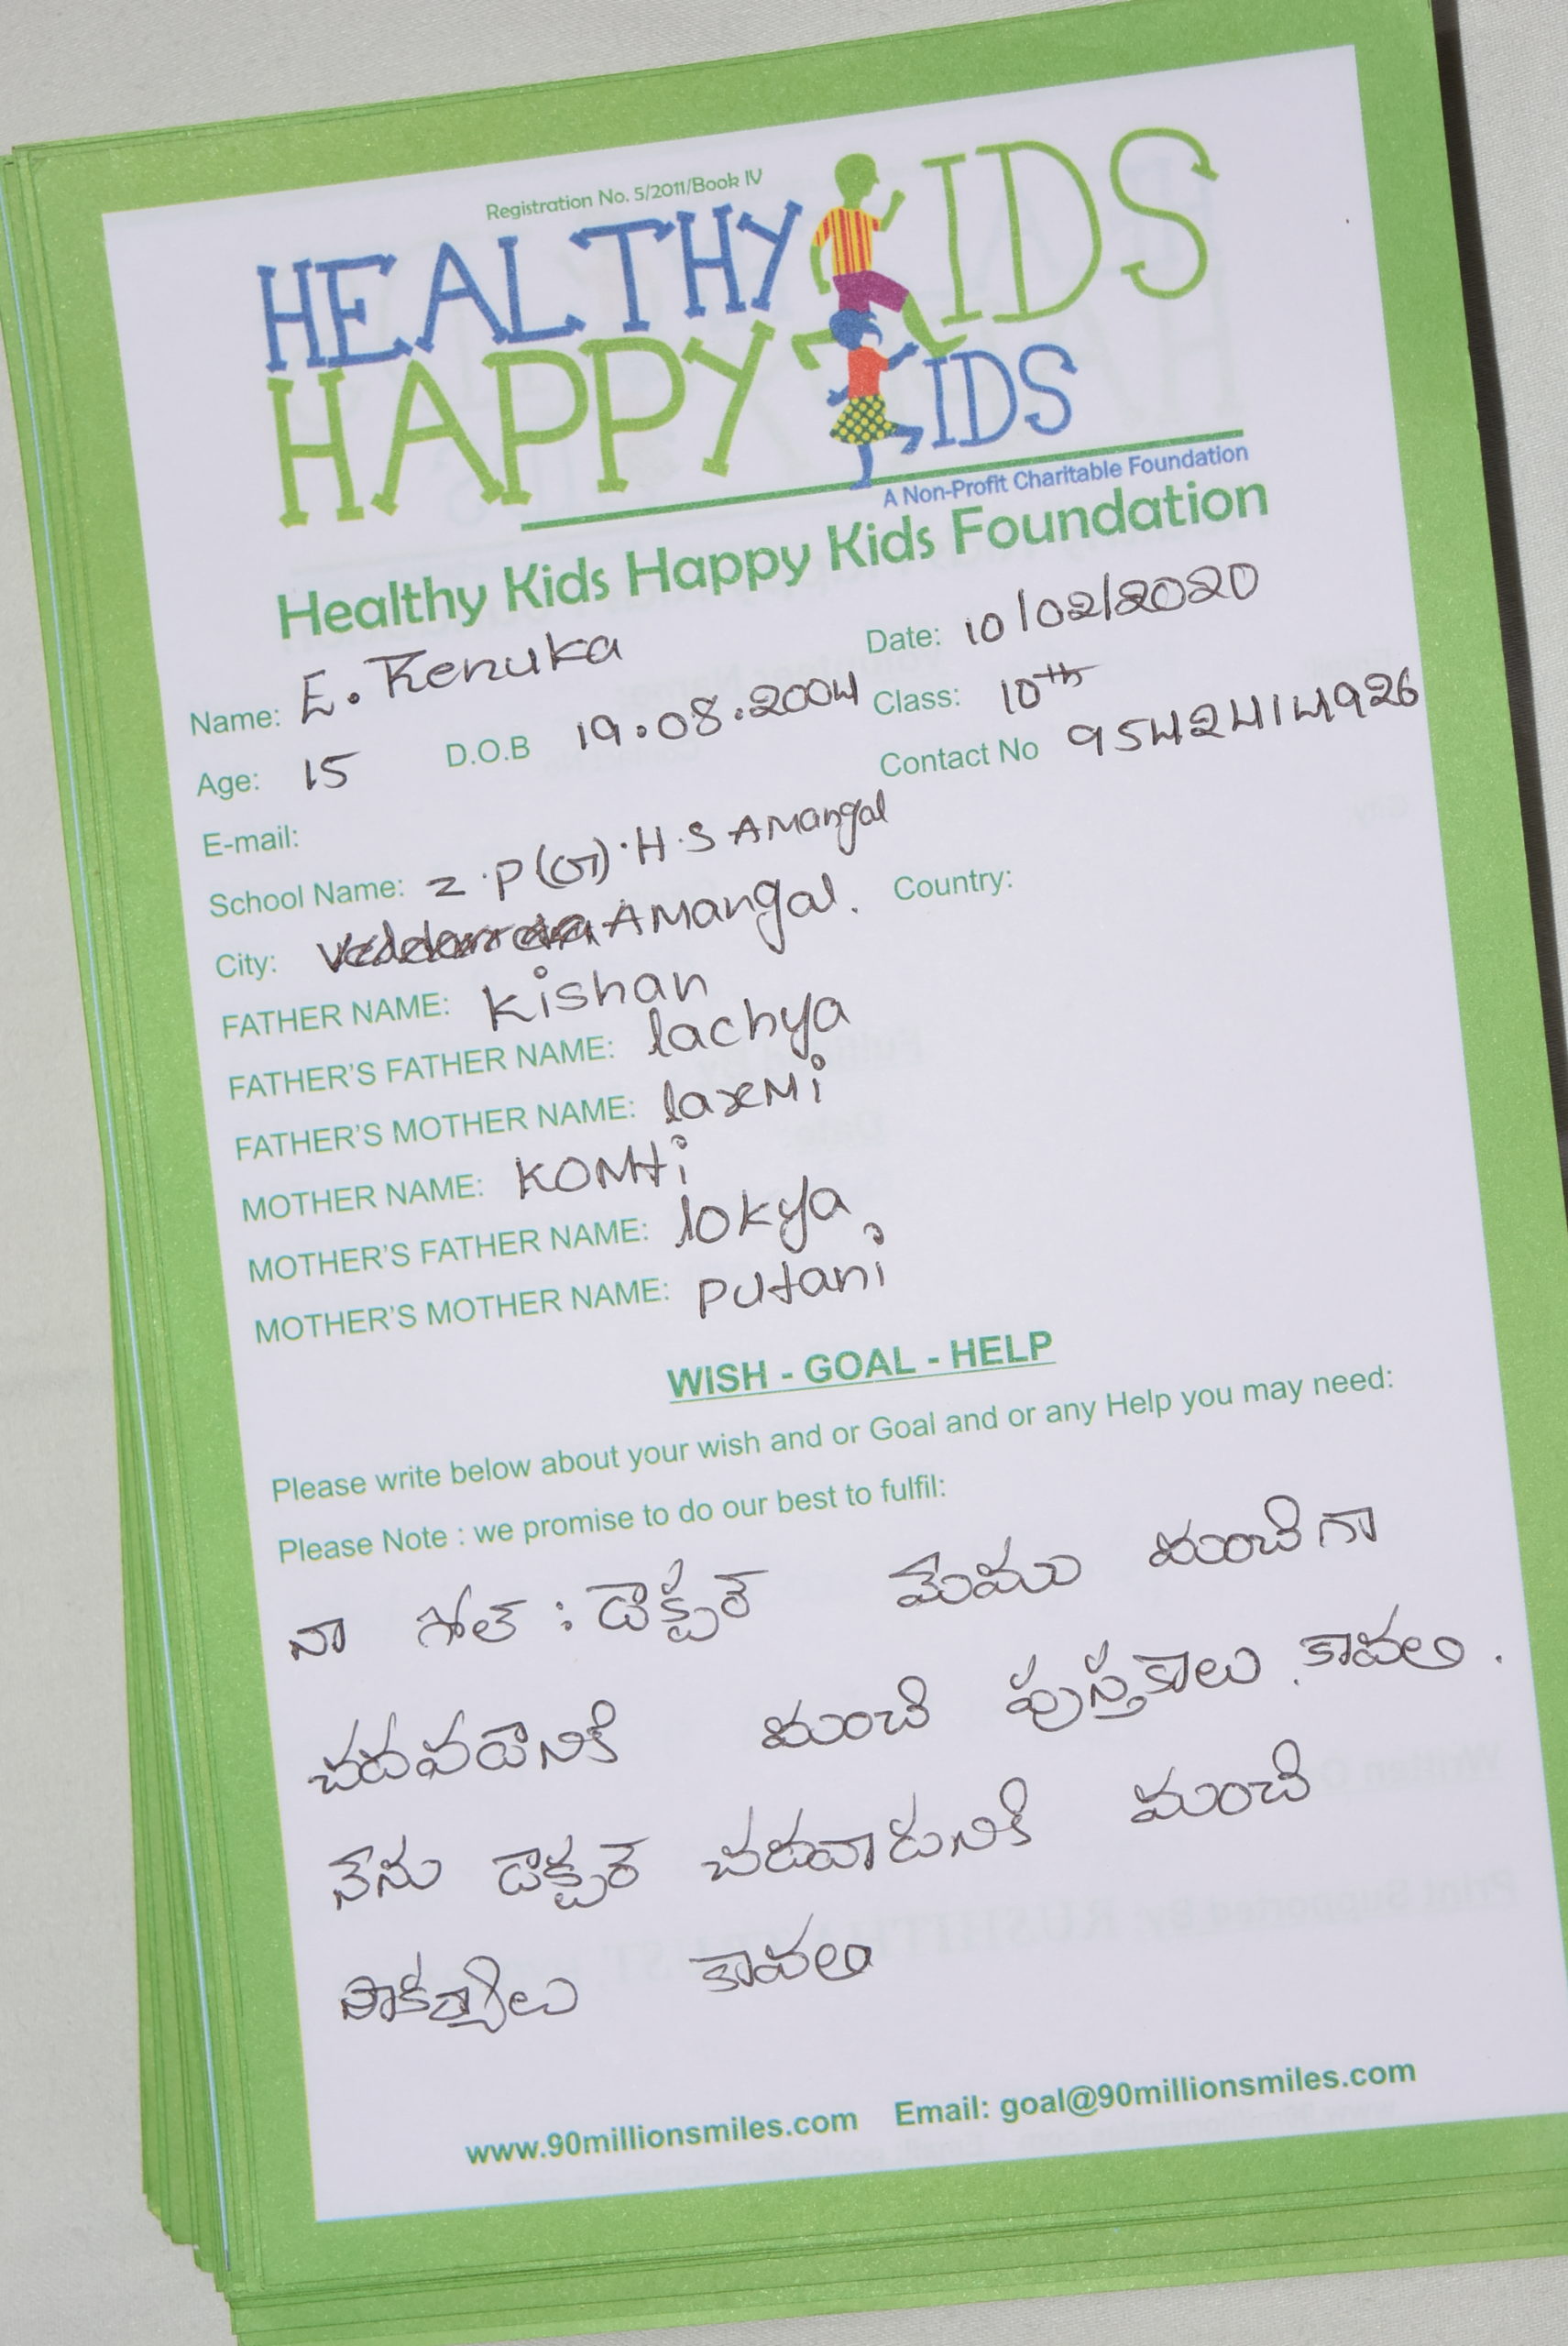 Registration No. 5/2011/Book IV
HEALTHY KIDS
HAPPY KIDS
A Non-Profit Charitable Foundation
Healthy Kids Happy Kids Foundation
Name: E. Renuka Date: 10/02/2020
Age: 15 D.O.B 19.08.2004 Class: 10th
E-mail: Contact No 9542414926
School Name: Z.P(G).H.S AMangal
City: AMangal. Country:
FATHER NAME: Kishan
FATHER'S FATHER NAME: lachya
FATHER'S MOTHER NAME: laxMi
MOTHER NAME: KOMti
MOTHER'S FATHER NAME: lokya
MOTHER'S MOTHER NAME: putani
WISH - GOAL - HELP
Please write below about your wish and or Goal and or any Help you may need:
Please Note : we promise to do our best to fulfil:
నా గోల్ : డాక్టర్ మేము మంచిగా
చదవడానికి మంచి పుస్తకాలు కావలి .
నేను డాక్టర్ చదవాడునికి మంచి
కావలి
www.90millionsmiles.com Email: goal@90millionsmiles.com